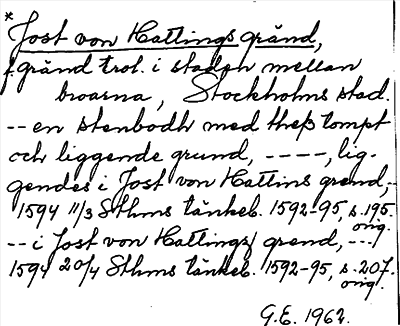 *
Jost von Hattings gränd,
f. gränd trol. i staden mellan
broarna, Stockholms stad.
-- en stenbodh med thess tompt
och liggende grund, ----, lig-
gendes i Jost von Hattins grend, --
1594 11/3 Sthms tänkeb. 1592-95, s. 195.
orig.
-- i Jost von Hattings grend, ---
1594 20/4 Sthms tänkeb. 1592-95, s. 207.
orig.
G.E. 1962.